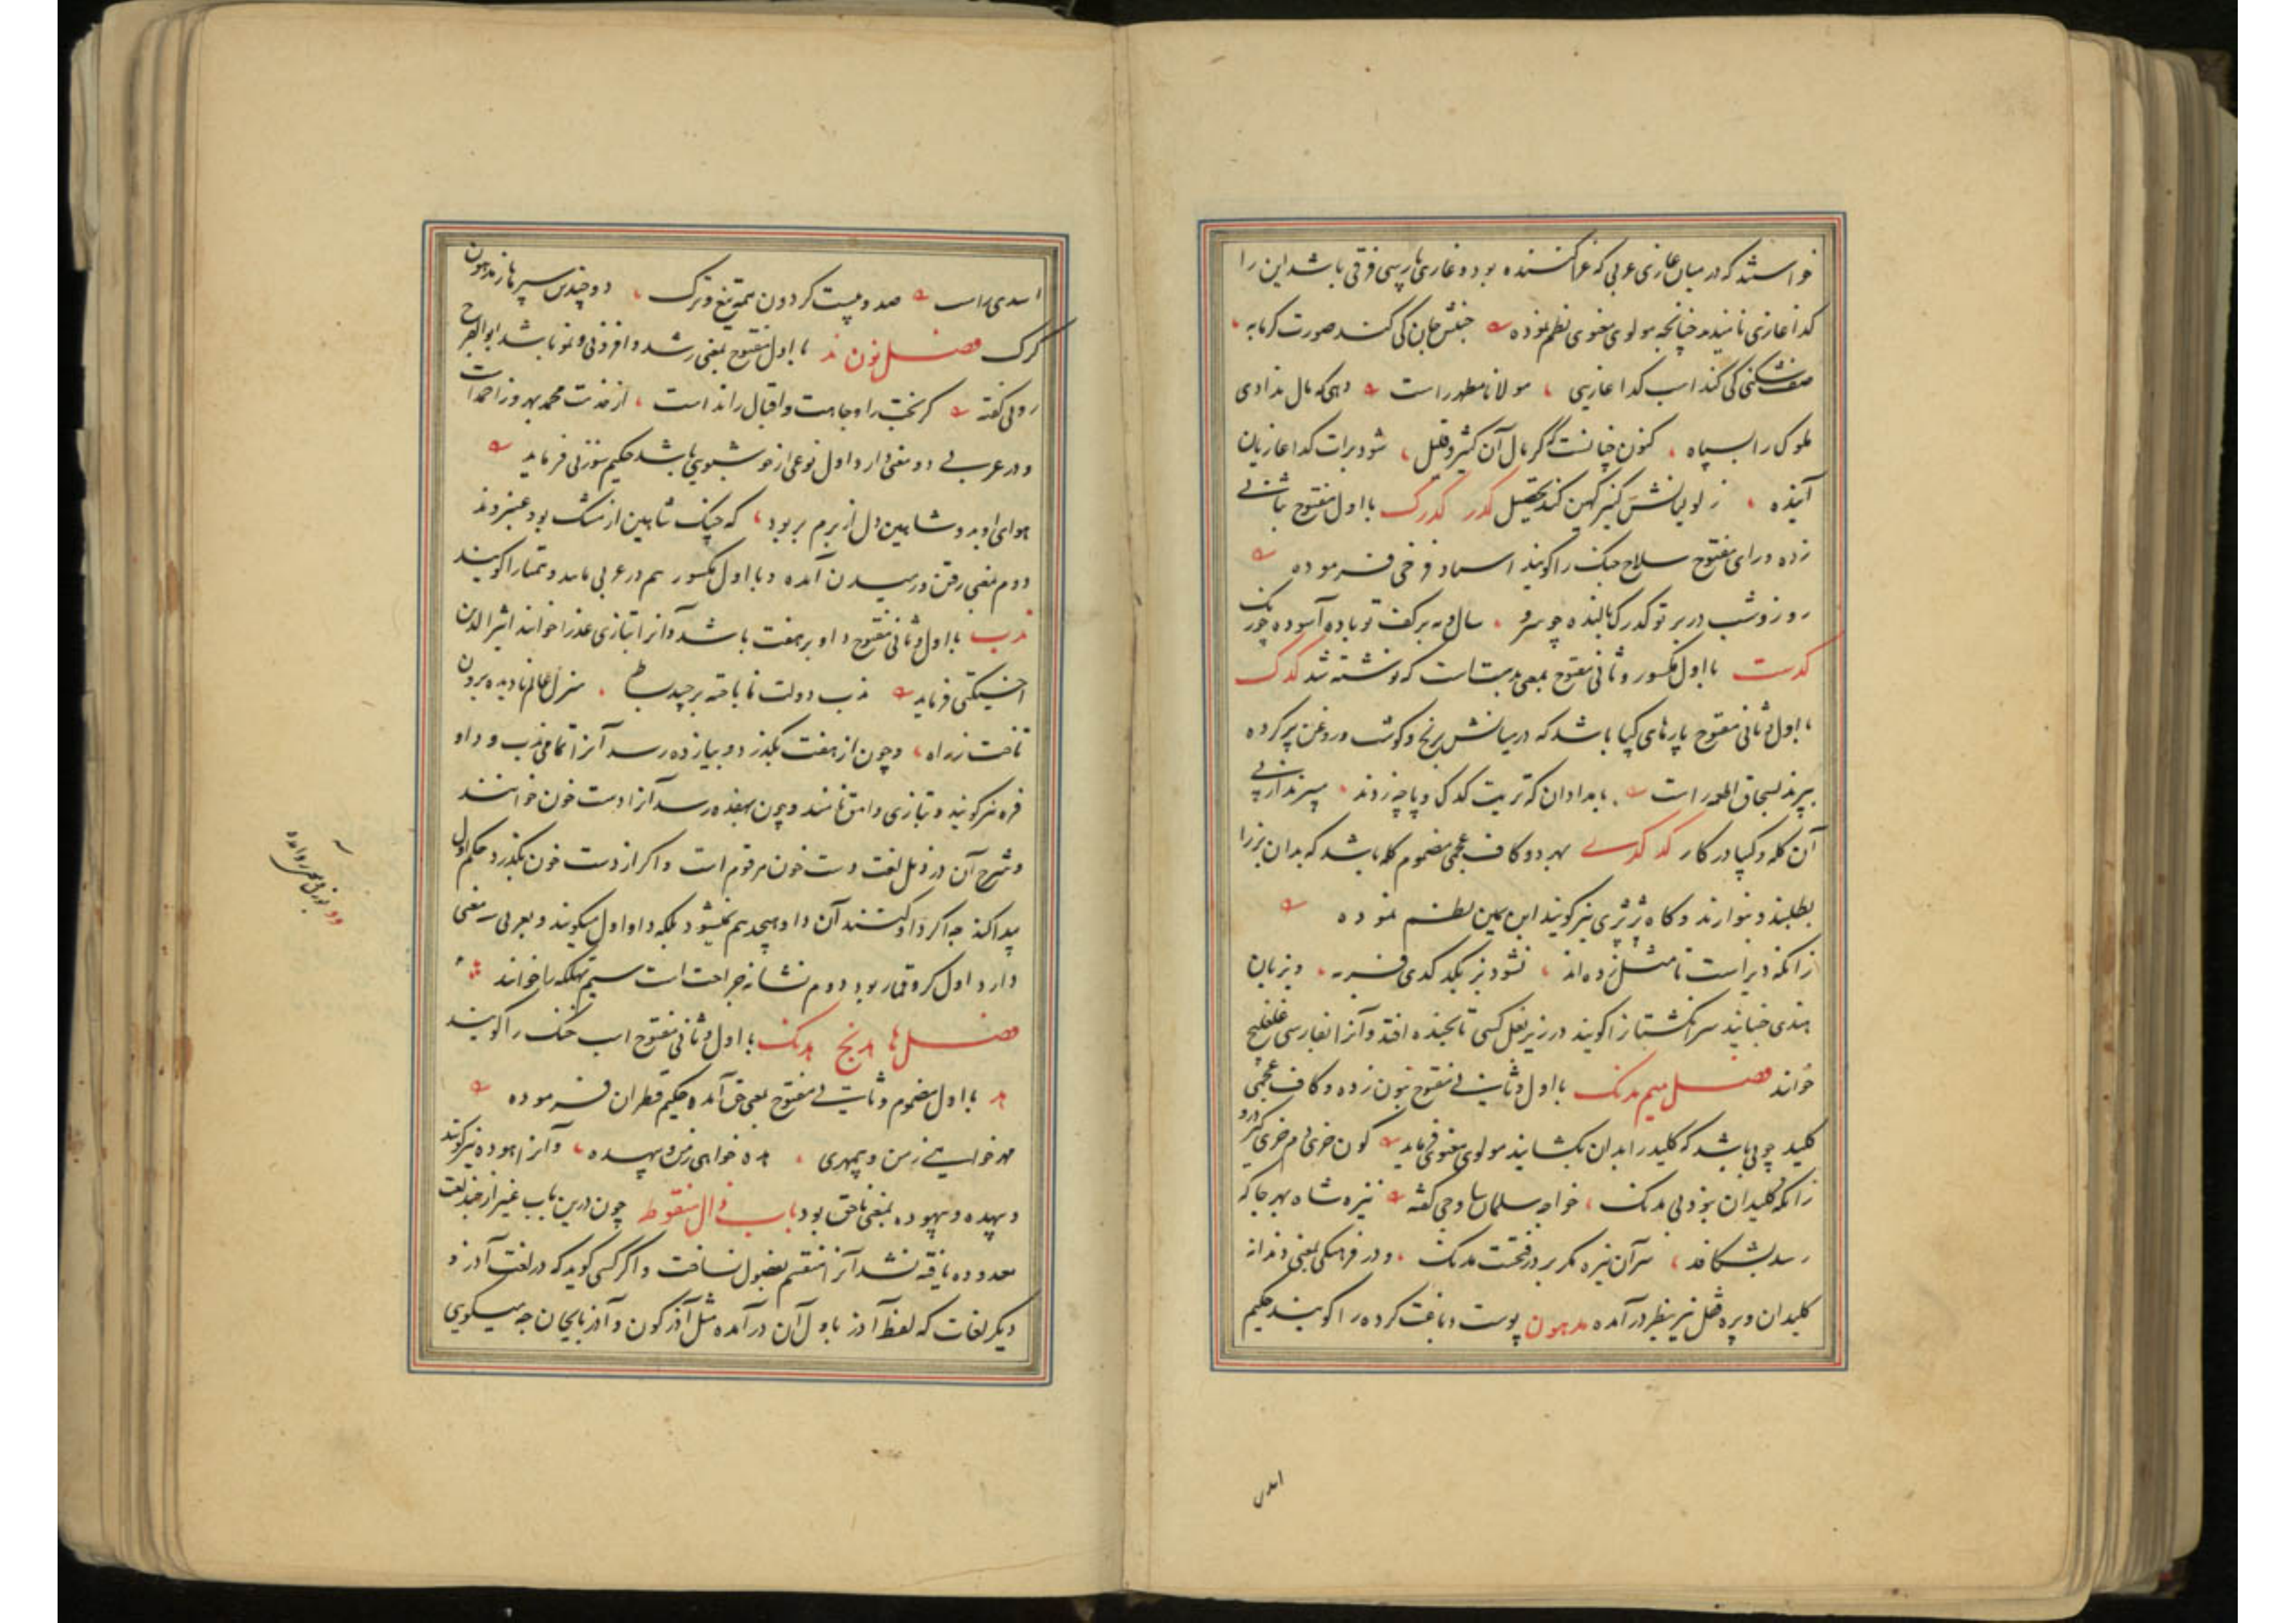 خواستند که در میان غازی عربی که غزا کننده بود و غازی پارسی فرقی باشد این را
کدا غازی نامیدند چنانچه مولوی معنوی نظم نموده جنبش جان کی کند صورت کرمابه
صف شکنی کی کند اسب کدا غازیی مولانا مطهر راست دهی که مال ندادی
ملوک را بسپاه کنون چنانست که کر مال آن کثیر و قلیل شود برات کدا غازیان
آینده ز لولیانش کنیز کهین کند تحصیل کدر کدرک با اول مفتوح بثانی
زده و رای مفتوح سلاح جنک را کویند استاد فرخی فرموده
روز و شب در بر تو کدرک بالنده چو سرو سال و مه بر کف تو باده آسوده چو زنک
کدست با اول مکسور و ثانی مفتوح بمعنی بدست است که نوشته شد کدک
با اول و ثانی مفتوح پارهای کیپا باشد که در میانش برنج و کوشت و روغن پر کرده
بپزند بسحاق اطعمه راست بامدادان که تربیت کدک و پاچه زدند سیر ندار پی
آن کله و کیپا در کار کد کدی بهر دو کاف عجمی مضموم کله باشد که بدان بز را
بطلبند و بنوازند و کاه ژژی نیز کویند ابن یمین نظم نموده
زانکه دیر است تا مثل زده اند نشود بز بکد کدی فربه و بزبان
هندی جنبانیدن سر انکشتانرا کویند در زیر بغل کسی تا بخنده افتد و آنرا بفارسی غلغلیچ
خوانند فصل میم مدنک با اول و ثانی مفتوح بنون زده و کاف عجمی
کلید چوبی باشد که کلیدانرا بدان بکشایند مولوی معنوی فرماید کون خری دم خری کیر و رو
زانکه کلیدان بنود بی مدنک خواجه سلمان ساوجی کفته نیزه شاه بهر جا که
رسد بشکافد سر آن نیزه مکر بر در فتحست مدنک و در فرهنکی بمعنی دندانه
کلیدان و پره قفل نیز بنظر در آمده مدهون پوست دباغت کرده را کویند حکیم
اسدی
اسدی راست صد و بیست کردون همه تیغ و ترک دو چندین سپرها ز مدهون
کرک فصل نون ند با اول مفتوح بمعنی رشد و افزونی و نمو باشد ابوالفرج
رونی کفته کر بخت را وجاهت و اقبال را ند است از خدمت محمد بهروز احمد است
و در عربی دو معنی دارد اول نوعی از خوشبوی باشد حکیم سوزنی فرماید
هوای او بدو شاهین دل از برم بربود که چنک شاهین از مشک بود و عنبر و ند
دوم بمعنی رفتن و رسیدن آمده و با اول مکسور هم در عربی مانند و همتا را کویند
ندب با اول و ثانی مفتوح داو بر هفت باشد و آنرا بتازی عذرا خوانند اثیرالدین
اخسیکتی فرماید ندب دولت نا باخته برچید بساط منزل عالم نادیده برون
تاخت ز راه و چون از هفت بکذرد و بیازده رسد آنرا تمامی ندب و داو
فره نیز کویند و بتازی وامق نامند و چون بهفده رسد آنرا دست خون خوانند
و شرح آن در ذیل لغت دست خون مرقوم است و اکر از دست خون بکذرد حکم اول
پیدا کند چه اکر داو کنند آن داو هیچدهم نمیشود بلکه داو اول میکویند و بعربی سه معنی
دارد اول کرو قمار بود دوم نشانه جراحت است سیم تهلکه را خوانند
فصل ها هدنج هدنک با اول و ثانی مفتوح اسب خنک را کویند
هد با اول مضموم و ثانی مفتوح بمعنی حق آمده حکیم قطران فرموده
مهر خواهی زمن و بیمهری هده خواهی زمن و بیهده و آنرا هوده نیز کویند
و بیهده و بیهوده بمعنی ناحق بود باب ذال منقوط چون درین باب غیر از چند لغت
معدوده یافته نشد آنرا منقسم بفصول نساخت و اکر کسی کوید که در لغت آذر و
دیکر لغات که لفظ آذر باول آن در آمده مثل آذرکون و آذربایجان چه میکویی